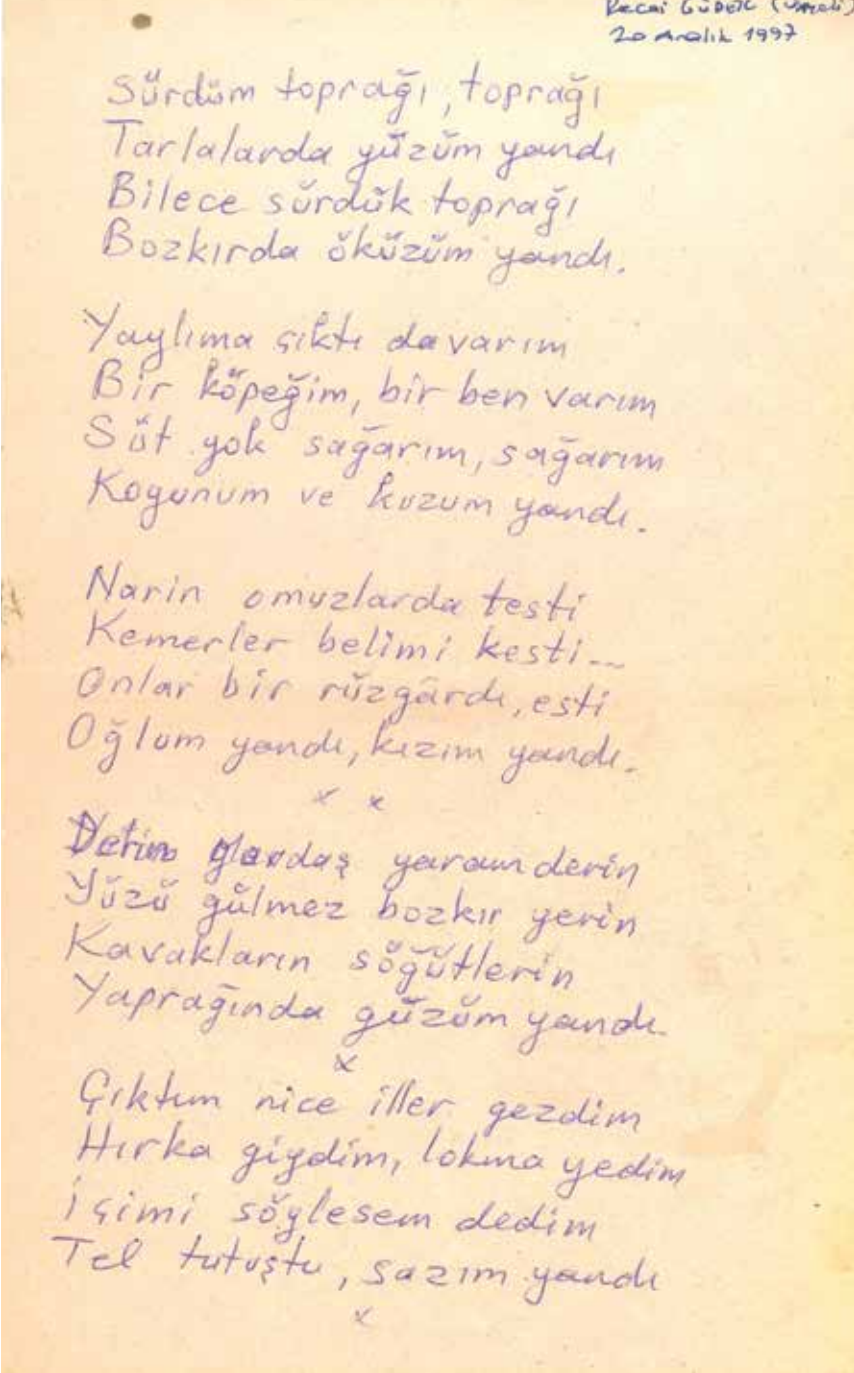 Recai
20 Aralık 1997
Sürdüm toprağı, toprağı
Tarlalarda yüzüm yandı
Bilece sürdük toprağı
Bozkırda öküzüm yandı.
Yaylıma çıktı davarım
Bir köpeğim, bir ben varım
Süt yok sağarım, sağarım
Koyunum ve kuzum yandı.
Narin omuzlarda testi
Kemerler belimi kesti...
Onlar bir rüzgârdı, esti
Oğlum yandı, kızım yandı.
x x
yaram derin
Yüzü gülmez bozkır yerin
Kavakların söğütlerin
Yaprağında güzüm yandı.
x
Çıktım nice iller gezdim
Hırka giydim, lokma yedim
İçimi söylesem dedim
Tel tutuştu, sazım yandı
x